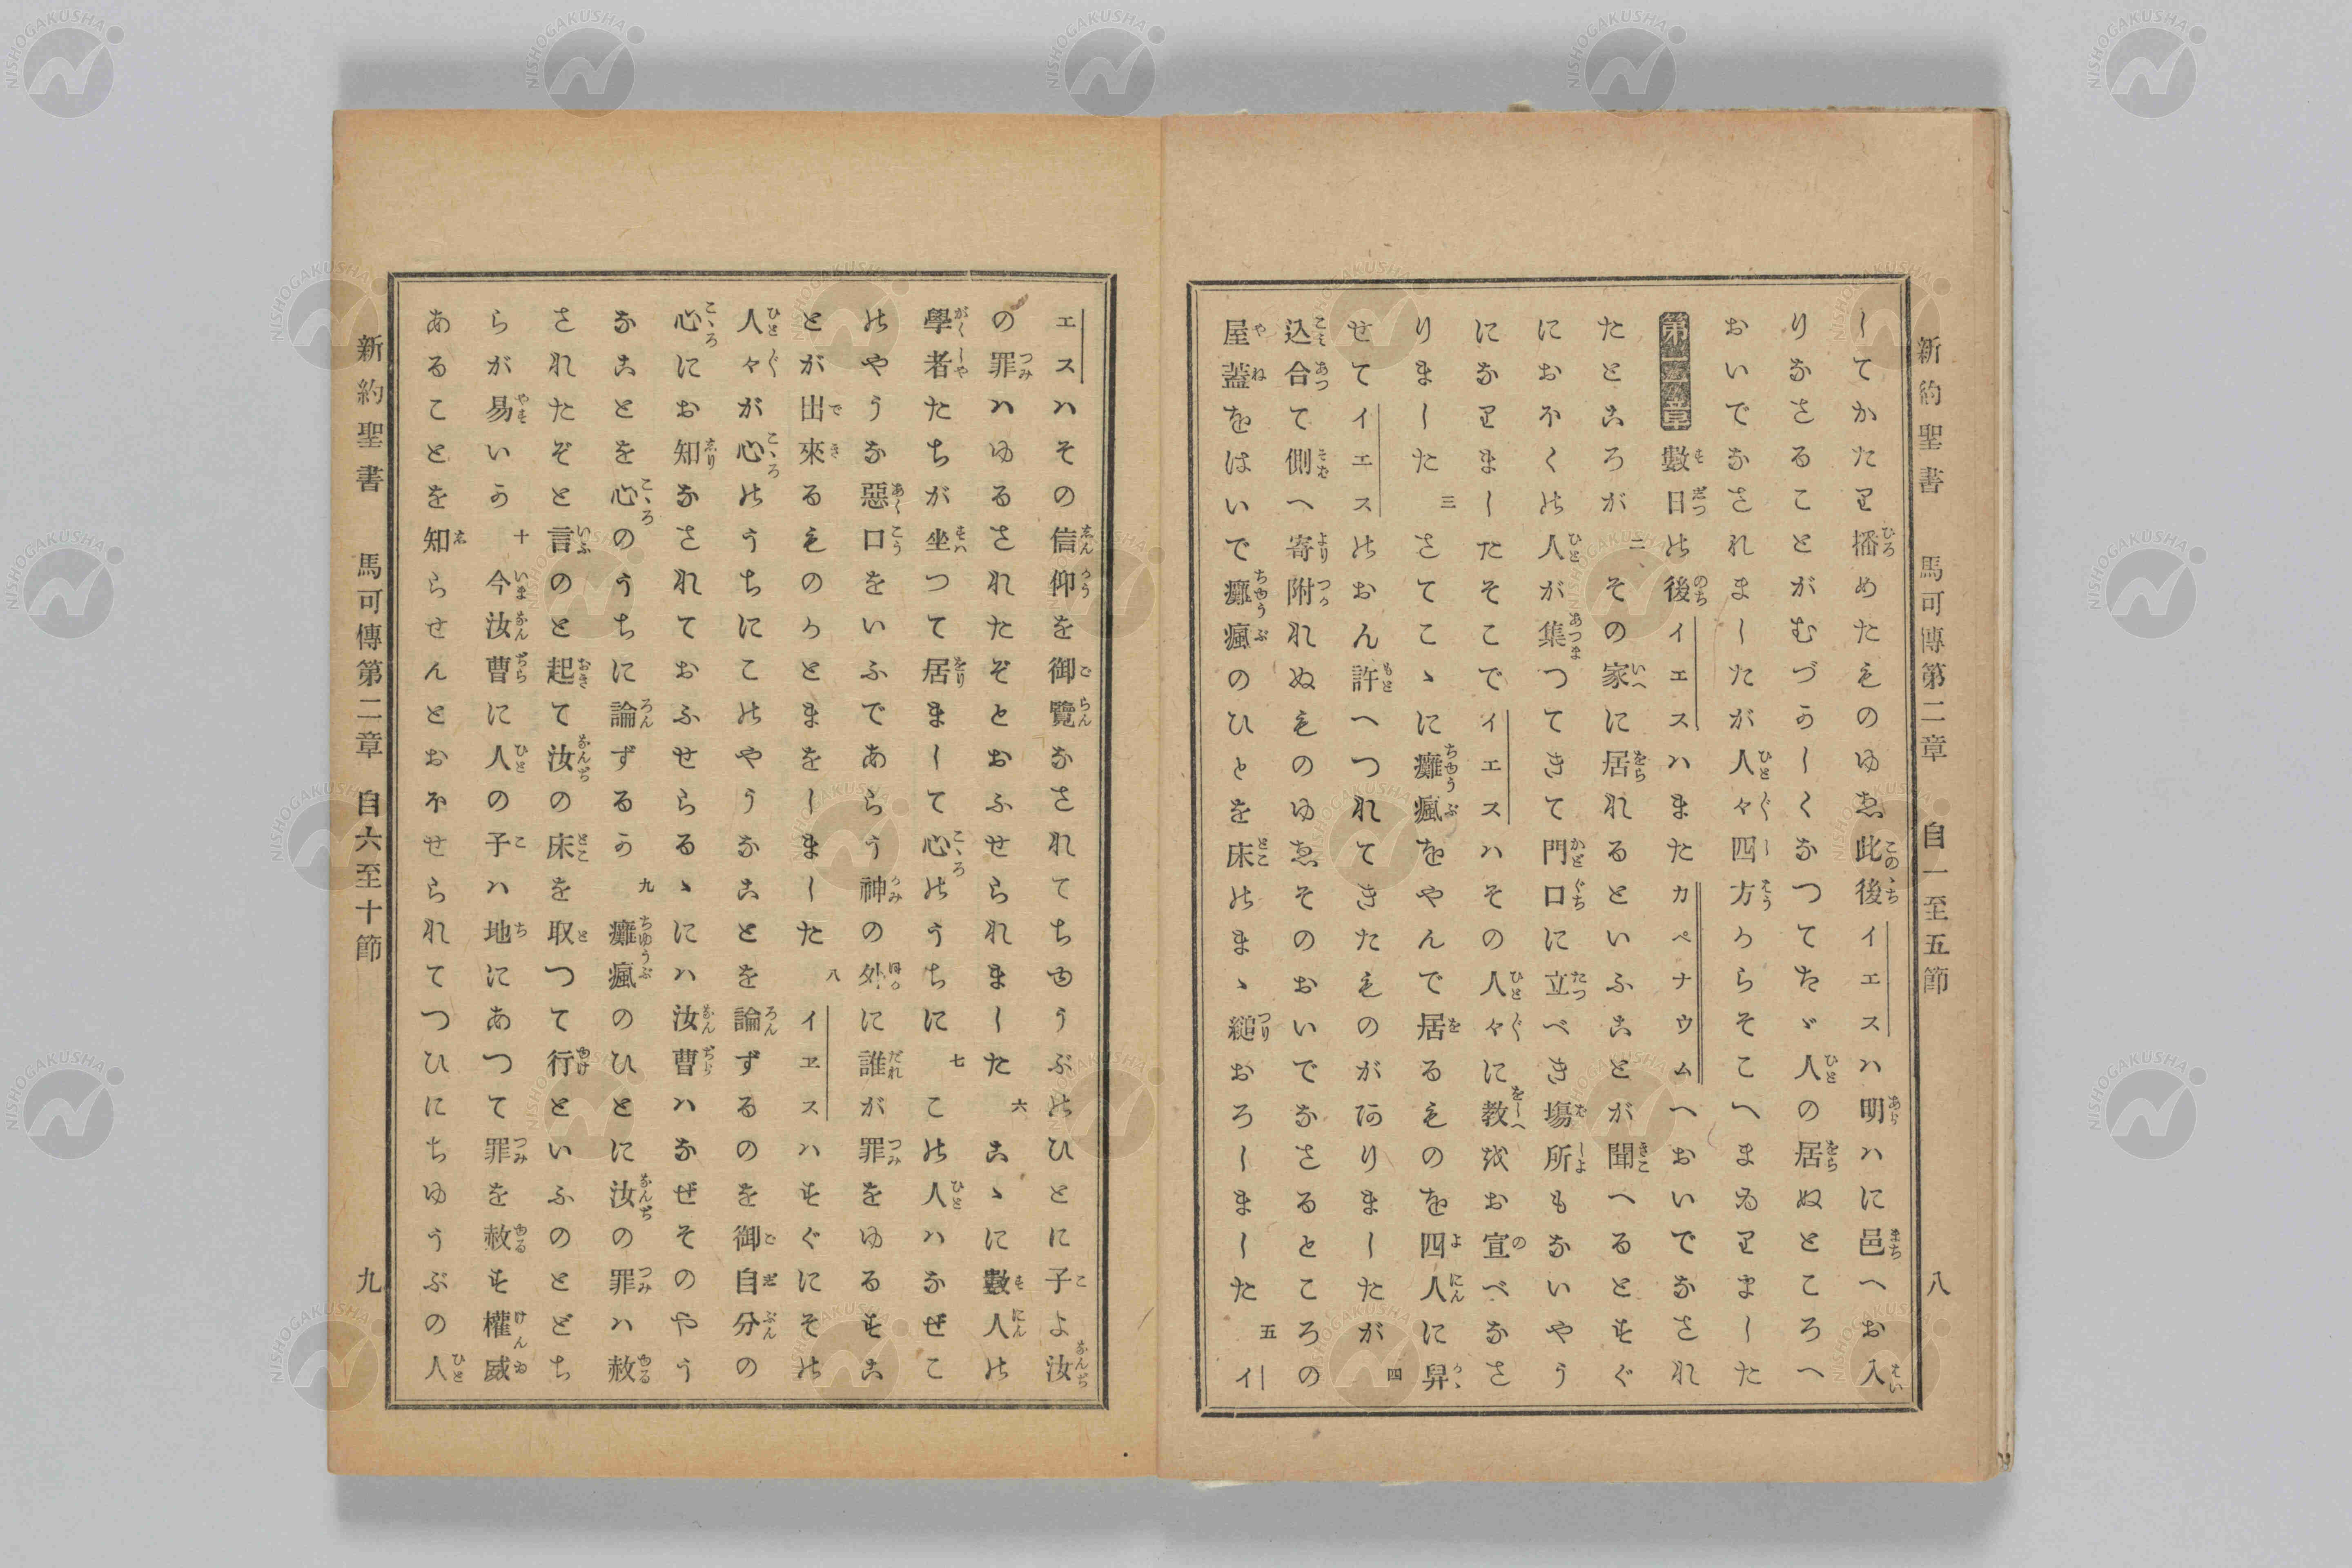 新約聖書 馬可傳第二章 自一至五節 八
してかたり播めたものゆゑ此後イエスハ明ハに邑へお入
りなさることがむづかしくなつてたゞ人の居ぬところへ
おいでなされましたが人々四方からそこへまゐりました
第二章 數日の後イエスハまたカペナウムへおいでなされ
たところが 二 その家に居れるといふことが聞へるとすぐ
におほくの人が集つてきて門口に立べき塲所もないやう
になりましたそこでイエスハその人々に教をお宣べなさ
りました 三 さてこゝに癱瘋をやんで居るものを四人に舁
せてイエスのおん許へつれてきたものがありましたが 四
込合て側へ寄附れぬものゆゑそのおいでなさるところの
屋蓋をはいで癱瘋のひとを床のまゝ縋おろしました 五 イ
エスハその信仰を御覽なされてちゆうぶのひとに子よ汝
の罪ハゆるされたぞとおふせられました 六 こゝに數人の
學者たちが坐つて居まして心のうちに 七 この人ハなぜこ
のやうな惡口をいふであらう神の外に誰が罪をゆるすこ
とが出來るものかとまをしました 八 イヱスハすぐにその
人々が心のうちにこのやうなことを論ずるのを御自分の
心にお知なされておふせらるゝにハ汝曹ハなぜそのやう
なことを心のうちに論ずるか 九 癱瘋のひとに汝の罪ハ赦
されたぞと言のと起て汝の床を取つて行といふのとどち
らが易いか 十 今汝曹に人の子ハ地にあつて罪を赦す權威
あることを知らせんとおほせられてつひにちゆうぶの人
新約聖書 馬可傳第二章 自六至十節 九
NISHOGAKUSHA